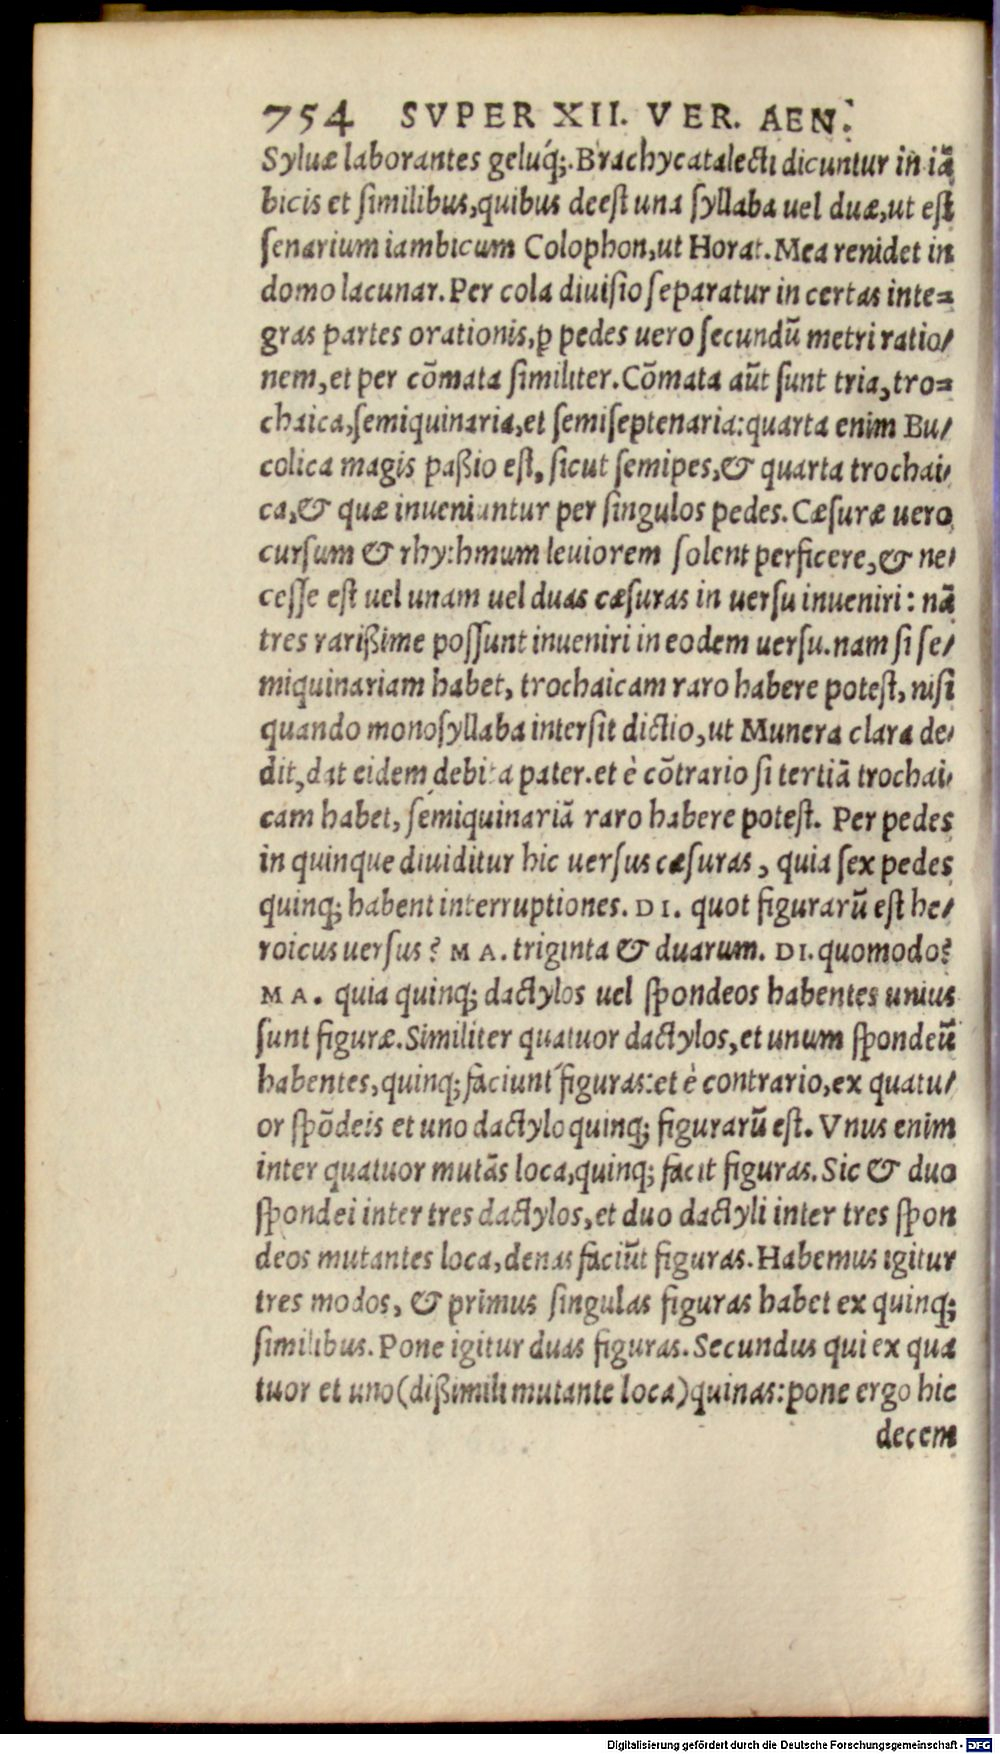 754 SVPER XII. VER. AEN.
Syluæ laborantes geluq́;. Brachycatalecti dicuntur in iā
bicis et similibus, quibus deest una syllaba uel duæ, ut est
senarium iambicum Colophon, ut Horat. Mea renidet in
domo lacunar. Per cola diuisio separatur in certas inte=
gras partes orationis, ꝑ pedes uero secundū metri ratio/
nem, et per cōmata similiter. Cōmata aūt sunt tria, tro=
chaica, semiquinaria, et semiseptenaria: quarta enim Bu/
colica magis paßio est, sicut semipes, & quarta trochai/
ca, & quæ inueniuntur per singulos pedes. Cæsuræ uero
cursum & rhythmum leuiorem solent perficere, & ne/
cesse est uel unam uel duas cæsuras in uersu inueniri: nā
tres rarißime possunt inueniri in eodem uersu. nam si se/
miquinariam habet, trochaicam raro habere potest, nisi
quando monosyllaba intersit dictio, ut Munera clara de/
dit, dat eidem debita pater. et è cōtrario si tertiā trochai/
cam habet, semiquinariā raro habere potest. Per pedes
in quinque diuiditur hic uersus cæsuras, quia sex pedes
quinq; habent interruptiones. DI. quot figurarū est he/
roicus uersus? MA. triginta & duarum. DI. quomodo?
MA. quia quinq; dactylos uel spondeos habentes unius
sunt figuræ. Similiter quatuor dactylos, et unum spondeū
habentes, quinq; faciunt figuras: et è contrario, ex quatu/
or spōdeis et uno dactylo quinq; figurarū est. Vnus enim
inter quatuor mutās loca, quinq; facit figuras. Sic & duo
spondei inter tres dactylos, et duo dactyli inter tres spon
deos mutantes loca, denas faciūt figuras. Habemus igitur
tres modos, & primus singulas figuras habet ex quinq;
similibus. Pone igitur duas figuras. Secundus qui ex qua
tuor et uno (dißimili mutante loca) quinas: pone ergo hic
decem
Digitalisierung gefördert durch die Deutsche Forschungsgemeinschaft - DFG